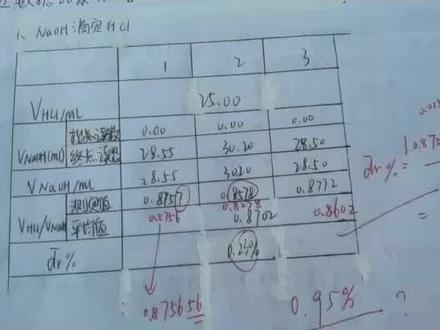 1、NaOH滴定HCl
1 2 3
VHCl/mL 25.00
VNaOH(mL) 起点读数 0.00 0.00 0.00
终点读数 28.55 30.20 28.50
VNaOH/mL 28.55 30.20 28.50
VHCl/VNaOH 0.8757 0.8578 0.8772
0.8756 0.8278
平均值 0.8702 0.8602
dr% 0.24%
dr% =
=
0.875656 0.95% ?